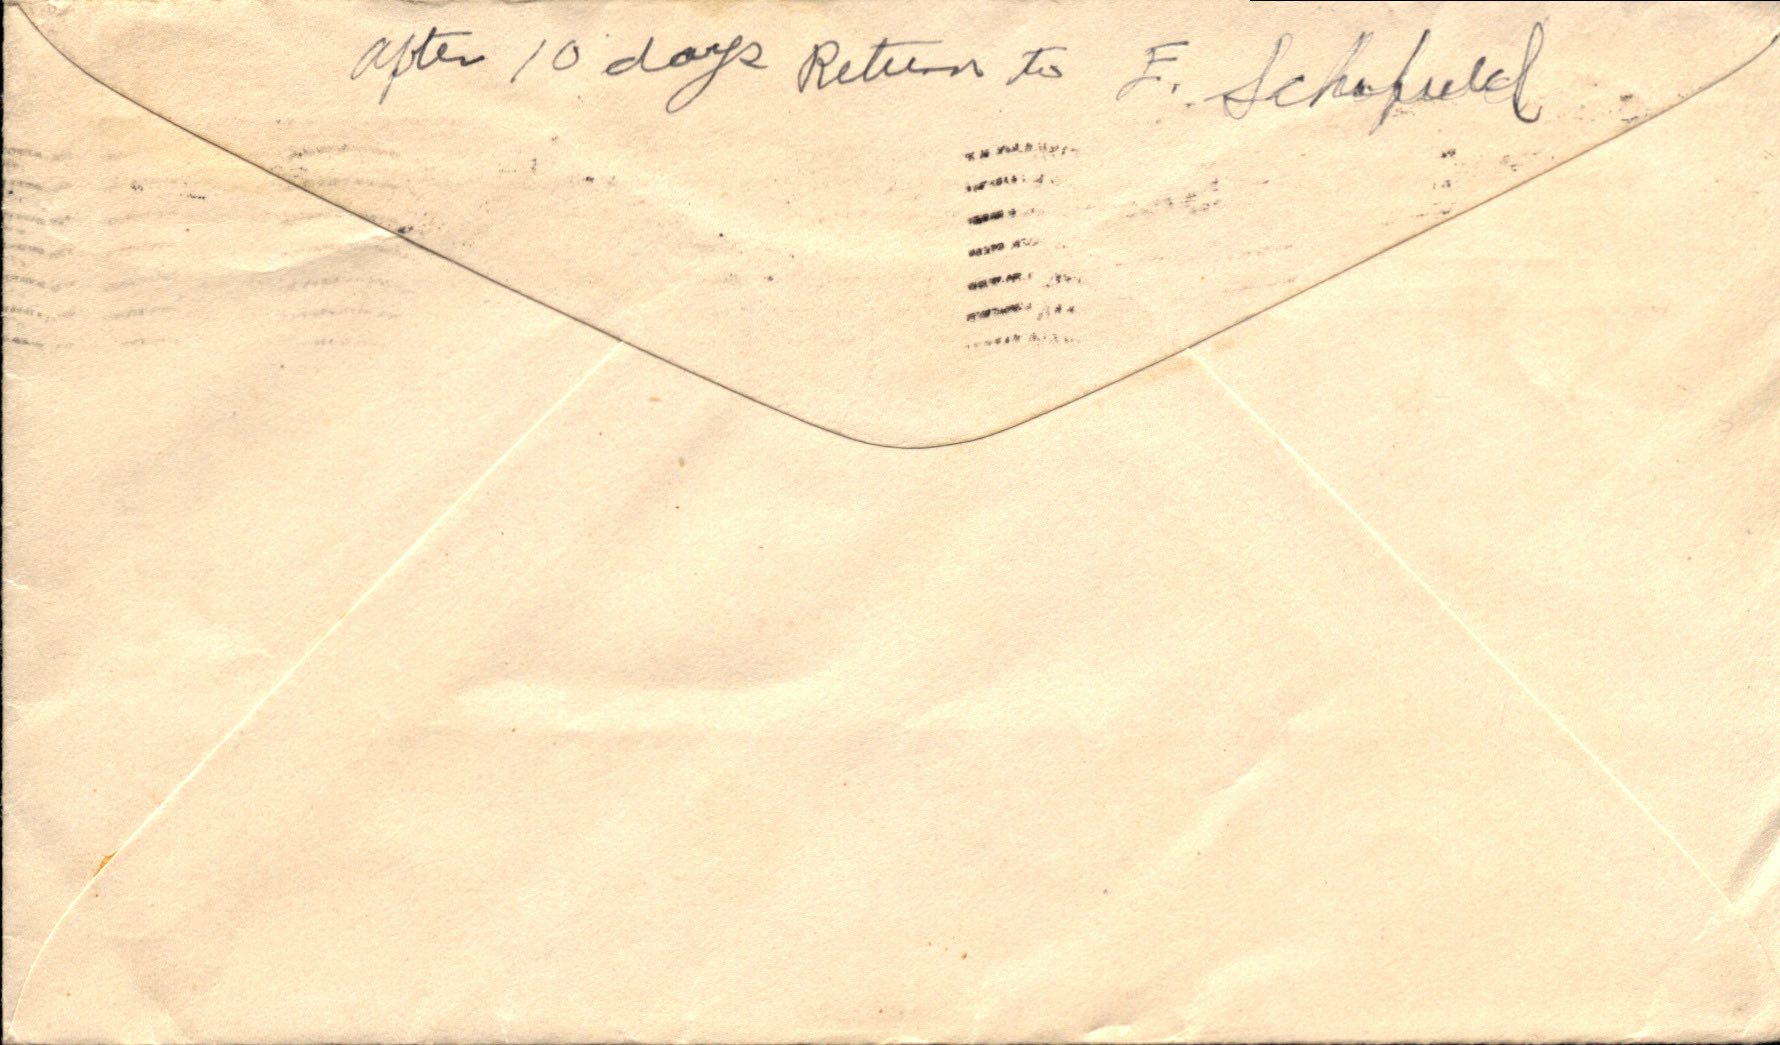 After 10 days Return to E. Schofield